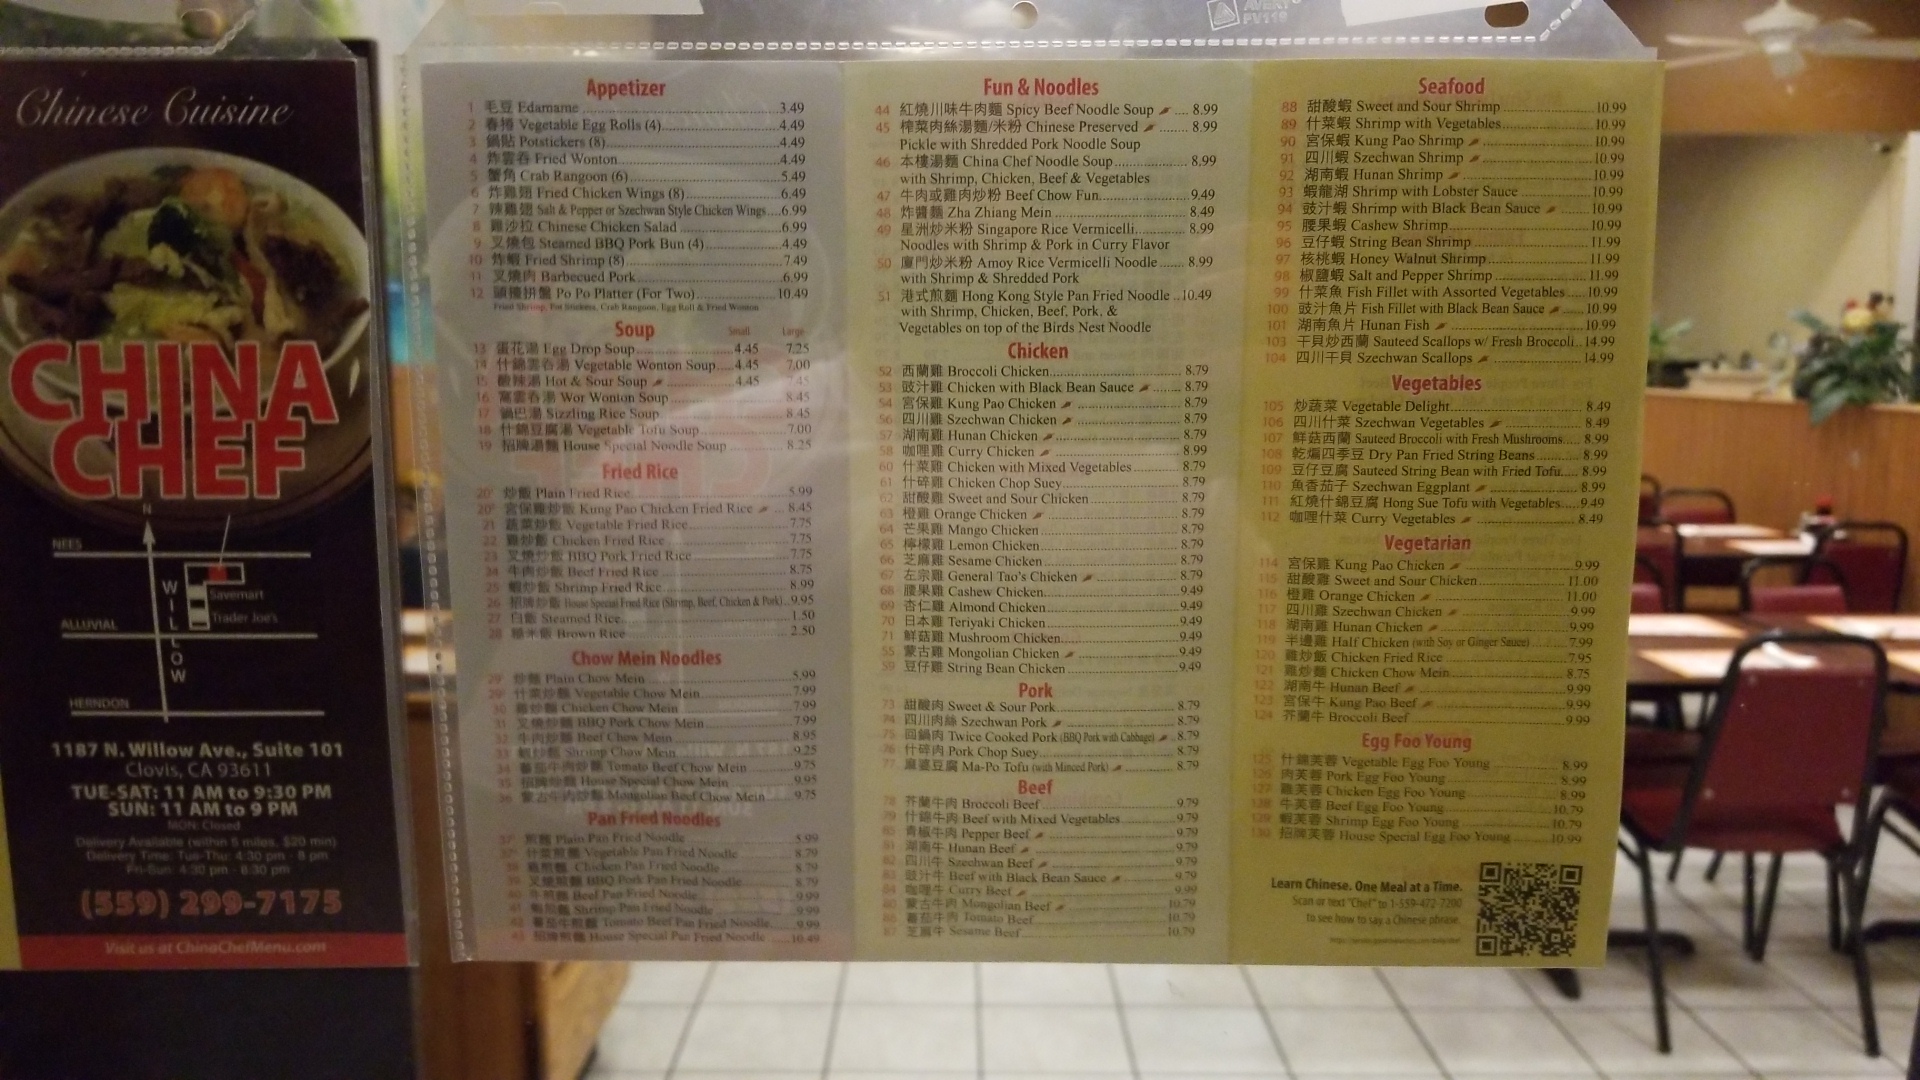 AVERY
PV119
Chinese Cuisine
CHINA
CHEF
N
NEES
WILLOW
Savemart
Trader Joe's
ALLUVIAL
HERNDON
1187 N. Willow Ave., Suite 101
Clovis, CA 93611
TUE-SAT: 11 AM to 9:30 PM
SUN: 11 AM to 9 PM
MON: Closed
Delivery Available (within 5 miles, $20 min)
Delivery Time: Tue-Thu: 4:30 pm - 8 pm
Fri-Sun: 4:30 pm - 8:30 pm
(559) 299-7175
Visit us at ChinaChefMenu.com
Appetizer
1 毛豆 Edamame 3.49
2 春捲 Vegetable Egg Rolls (4) 4.49
3 鍋貼 Potstickers (8) 4.49
4 炸雲吞 Fried Wonton 4.49
5 蟹角 Crab Rangoon (6) 5.49
6 炸雞翅 Fried Chicken Wings (8) 6.49
7 辣雞翅 Salt & Pepper or Szechwan Style Chicken Wings 6.99
8 雞沙拉 Chinese Chicken Salad 6.99
9 叉燒包 Steamed BBQ Pork Bun (4) 4.49
10 炸蝦 Fried Shrimp (8) 7.49
11 叉燒肉 Barbecued Pork 6.99
12 頭擡拼盤 Po Po Platter (For Two) 10.49
Fried Shrimp, Pot Stickers, Crab Rangoon, Egg Roll & Fried Wonton
Soup Small Large
13 蛋花湯 Egg Drop Soup 4.45 7.25
14 什錦雲吞湯 Vegetable Wonton Soup 4.45 7.00
15 酸辣湯 Hot & Sour Soup 4.45 7.45
16 窩雲吞湯 Wor Wonton Soup 8.45
17 鍋巴湯 Sizzling Rice Soup 8.45
18 什錦豆腐湯 Vegetable Tofu Soup 7.00
19 招牌湯麵 House Special Noodle Soup 8.25
Fried Rice
20 炒飯 Plain Fried Rice 5.99
20 宮保雞炒飯 Kung Pao Chicken Fried Rice 8.45
21 蔬菜炒飯 Vegetable Fried Rice 7.75
22 雞炒飯 Chicken Fried Rice 7.75
23 叉燒炒飯 BBQ Pork Fried Rice 7.75
24 牛肉炒飯 Beef Fried Rice 8.75
25 蝦炒飯 Shrimp Fried Rice 8.99
26 招牌炒飯 House Special Fried Rice (Shrimp, Beef, Chicken & Pork) 9.95
27 白飯 Steamed Rice 1.50
28 糙米飯 Brown Rice 2.50
Chow Mein Noodles
29 炒麵 Plain Chow Mein 5.99
29 什菜炒麵 Vegetable Chow Mein 7.99
30 雞炒麵 Chicken Chow Mein 7.99
31 叉燒炒麵 BBQ Pork Chow Mein 7.99
32 牛肉炒麵 Beef Chow Mein 8.95
33 蝦炒麵 Shrimp Chow Mein 9.25
34 蕃茄牛肉炒麵 Tomato Beef Chow Mein 9.75
35 招牌炒麵 House Special Chow Mein 9.95
36 蒙古牛肉炒麵 Mongolian Beef Chow Mein 9.75
Pan Fried Noodles
37 煎麵 Plain Pan Fried Noodle 5.99
37 什菜煎麵 Vegetable Pan Fried Noodle 8.79
38 雞煎麵 Chicken Pan Fried Noodle 8.79
39 叉燒煎麵 BBQ Pork Pan Fried Noodle 8.79
40 牛煎麵 Beef Pan Fried Noodle 9.99
41 蝦煎麵 Shrimp Pan Fried Noodle 9.99
42 蕃茄牛煎麵 Tomato Beef Pan Fried Noodle 9.99
43 招牌煎麵 House Special Pan Fried Noodle 10.49
Fun & Noodles
44 紅燒川味牛肉麵 Spicy Beef Noodle Soup 8.99
45 榨菜肉絲湯麵/米粉 Chinese Preserved 8.99
Pickle with Shredded Pork Noodle Soup
46 本樓湯麵 China Chef Noodle Soup 8.99
with Shrimp, Chicken, Beef & Vegetables
47 牛肉或雞肉炒粉 Beef Chow Fun 9.49
48 炸醬麵 Zha Zhiang Mein 8.49
49 星洲炒米粉 Singapore Rice Vermicelli 8.99
Noodles with Shrimp & Pork in Curry Flavor
50 廈門炒米粉 Amoy Rice Vermicelli Noodle 8.99
with Shrimp & Shredded Pork
51 港式煎麵 Hong Kong Style Pan Fried Noodle 10.49
with Shrimp, Chicken, Beef, Pork, &
Vegetables on top of the Birds Nest Noodle
Chicken
52 西蘭雞 Broccoli Chicken 8.79
53 豉汁雞 Chicken with Black Bean Sauce 8.79
54 宮保雞 Kung Pao Chicken 8.79
56 四川雞 Szechwan Chicken 8.79
57 湖南雞 Hunan Chicken 8.79
58 咖哩雞 Curry Chicken 8.99
60 什菜雞 Chicken with Mixed Vegetables 8.79
61 什碎雞 Chicken Chop Suey 8.79
62 甜酸雞 Sweet and Sour Chicken 8.79
63 橙雞 Orange Chicken 8.79
64 芒果雞 Mango Chicken 8.79
65 檸檬雞 Lemon Chicken 8.79
66 芝麻雞 Sesame Chicken 8.79
67 左宗雞 General Tao's Chicken 8.79
68 腰果雞 Cashew Chicken 9.49
69 杏仁雞 Almond Chicken 9.49
70 日本雞 Teriyaki Chicken 9.49
71 鮮菇雞 Mushroom Chicken 9.49
55 蒙古雞 Mongolian Chicken 9.49
59 豆仔雞 String Bean Chicken 9.49
Pork
73 甜酸肉 Sweet & Sour Pork 8.79
74 四川肉絲 Szechwan Pork 8.79
75 回鍋肉 Twice Cooked Pork (BBQ Pork with Cabbage) 8.79
76 什碎肉 Pork Chop Suey 8.79
77 麻婆豆腐 Ma-Po Tofu (with Minced Pork) 8.79
Beef
78 芥蘭牛肉 Broccoli Beef 9.79
79 什錦牛肉 Beef with Mixed Vegetables 9.79
80 青椒牛肉 Pepper Beef 9.79
81 湖南牛 Hunan Beef 9.79
82 四川牛 Szechwan Beef 9.79
83 豉汁牛 Beef with Black Bean Sauce 9.79
84 咖哩牛 Curry Beef 9.99
85 蒙古牛肉 Mongolian Beef 10.79
86 蕃茄牛肉 Tomato Beef 10.79
87 芝麻牛 Sesame Beef 10.79
Seafood
88 甜酸蝦 Sweet and Sour Shrimp 10.99
89 什菜蝦 Shrimp with Vegetables 10.99
90 宮保蝦 Kung Pao Shrimp 10.99
91 四川蝦 Szechwan Shrimp 10.99
92 湖南蝦 Hunan Shrimp 10.99
93 蝦龍湖 Shrimp with Lobster Sauce 10.99
94 豉汁蝦 Shrimp with Black Bean Sauce 10.99
95 腰果蝦 Cashew Shrimp 10.99
96 豆仔蝦 String Bean Shrimp 11.99
97 核桃蝦 Honey Walnut Shrimp 11.99
98 椒鹽蝦 Salt and Pepper Shrimp 11.99
99 什菜魚 Fish Fillet with Assorted Vegetables 10.99
100 豉汁魚片 Fish Fillet with Black Bean Sauce 10.99
101 湖南魚片 Hunan Fish 10.99
103 干貝炒西蘭 Sauteed Scallops w/ Fresh Broccoli 14.99
104 四川干貝 Szechwan Scallops 14.99
Vegetables
105 炒蔬菜 Vegetable Delight 8.49
106 四川什菜 Szechwan Vegetables 8.49
107 鮮菇西蘭 Sauteed Broccoli with Fresh Mushrooms 8.99
108 乾煸四季豆 Dry Pan Fried String Beans 8.99
109 豆仔豆腐 Sauteed String Bean with Fried Tofu 8.99
110 魚香茄子 Szechwan Eggplant 8.99
111 紅燒什錦豆腐 Hong Sue Tofu with Vegetables 9.49
112 咖哩什菜 Curry Vegetables 8.49
Vegetarian
114 宮保雞 Kung Pao Chicken 9.99
115 甜酸雞 Sweet and Sour Chicken 11.00
116 橙雞 Orange Chicken 11.00
117 四川雞 Szechwan Chicken 9.99
118 湖南雞 Hunan Chicken 9.99
119 半邊雞 Half Chicken (with Soy or Ginger Sauce) 7.99
120 雞炒飯 Chicken Fried Rice 7.95
121 雞炒麵 Chicken Chow Mein 8.75
122 湖南牛 Hunan Beef 9.99
123 宮保牛 Kung Pao Beef 9.99
124 芥蘭牛 Broccoli Beef 9.99
Egg Foo Young
125 什錦芙蓉 Vegetable Egg Foo Young 8.99
126 肉芙蓉 Pork Egg Foo Young 8.99
127 雞芙蓉 Chicken Egg Foo Young 8.99
128 牛芙蓉 Beef Egg Foo Young 10.79
129 蝦芙蓉 Shrimp Egg Foo Young 10.79
130 招牌芙蓉 House Special Egg Foo Young 10.99
Learn Chinese. One Meal at a Time.
Scan or text "Chef" to 1-559-472-7200
to see how to say a Chinese phrase.